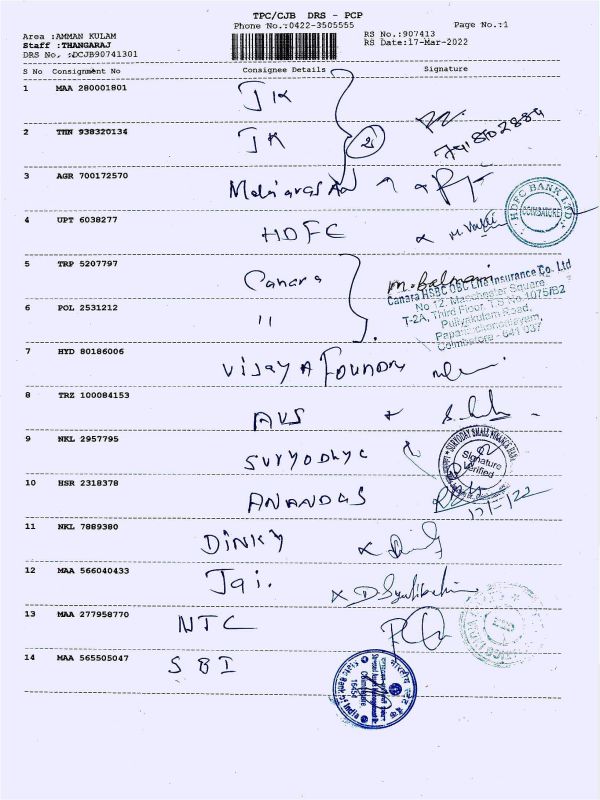 TPC/CJB DRS - PCP
Phone No.:0422-3505555 Page No.:1
Area :AMMAN KULAM RS No.:907413
Staff :THANGARAJ RS Date:17-Mar-2022
DRS No. :DCJB90741301
S No Consignment No Consignee Details Signature
1 MAA 280001801 JK
2 THN 938320134 JK
3 AGR 700172570
HDFC BANK LTD.
COIMBATORE
4 UPT 6038277 HDFC
5 TRP 5207797 Canara
Canara HSBC OBC Life Insurance Co. Ltd
No 12, Manchester Square
T-2A, Third Floor, T S No 1075/B2
Puliyakulam Road,
Papanaickenpalayam,
Coimbatore - 641 037
6 POL 2531212 "
7 HYD 80186006 Vijaya Foundry
8 TRZ 100084153 AVS
9 NKL 2957795 Suryodhyc
SURYODAY SMALL FINANCE BANK
Signature
Verified
10 HSR 2318378 ANANDAS
11 NKL 7889380 Dinky
12 MAA 566040433 Jai.
13 MAA 277958770 NTC
14 MAA 565505047 SBI
State Bank of India